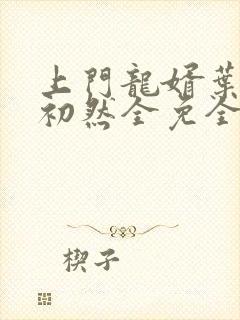 上門龍婿葉
初然全免全
楔子